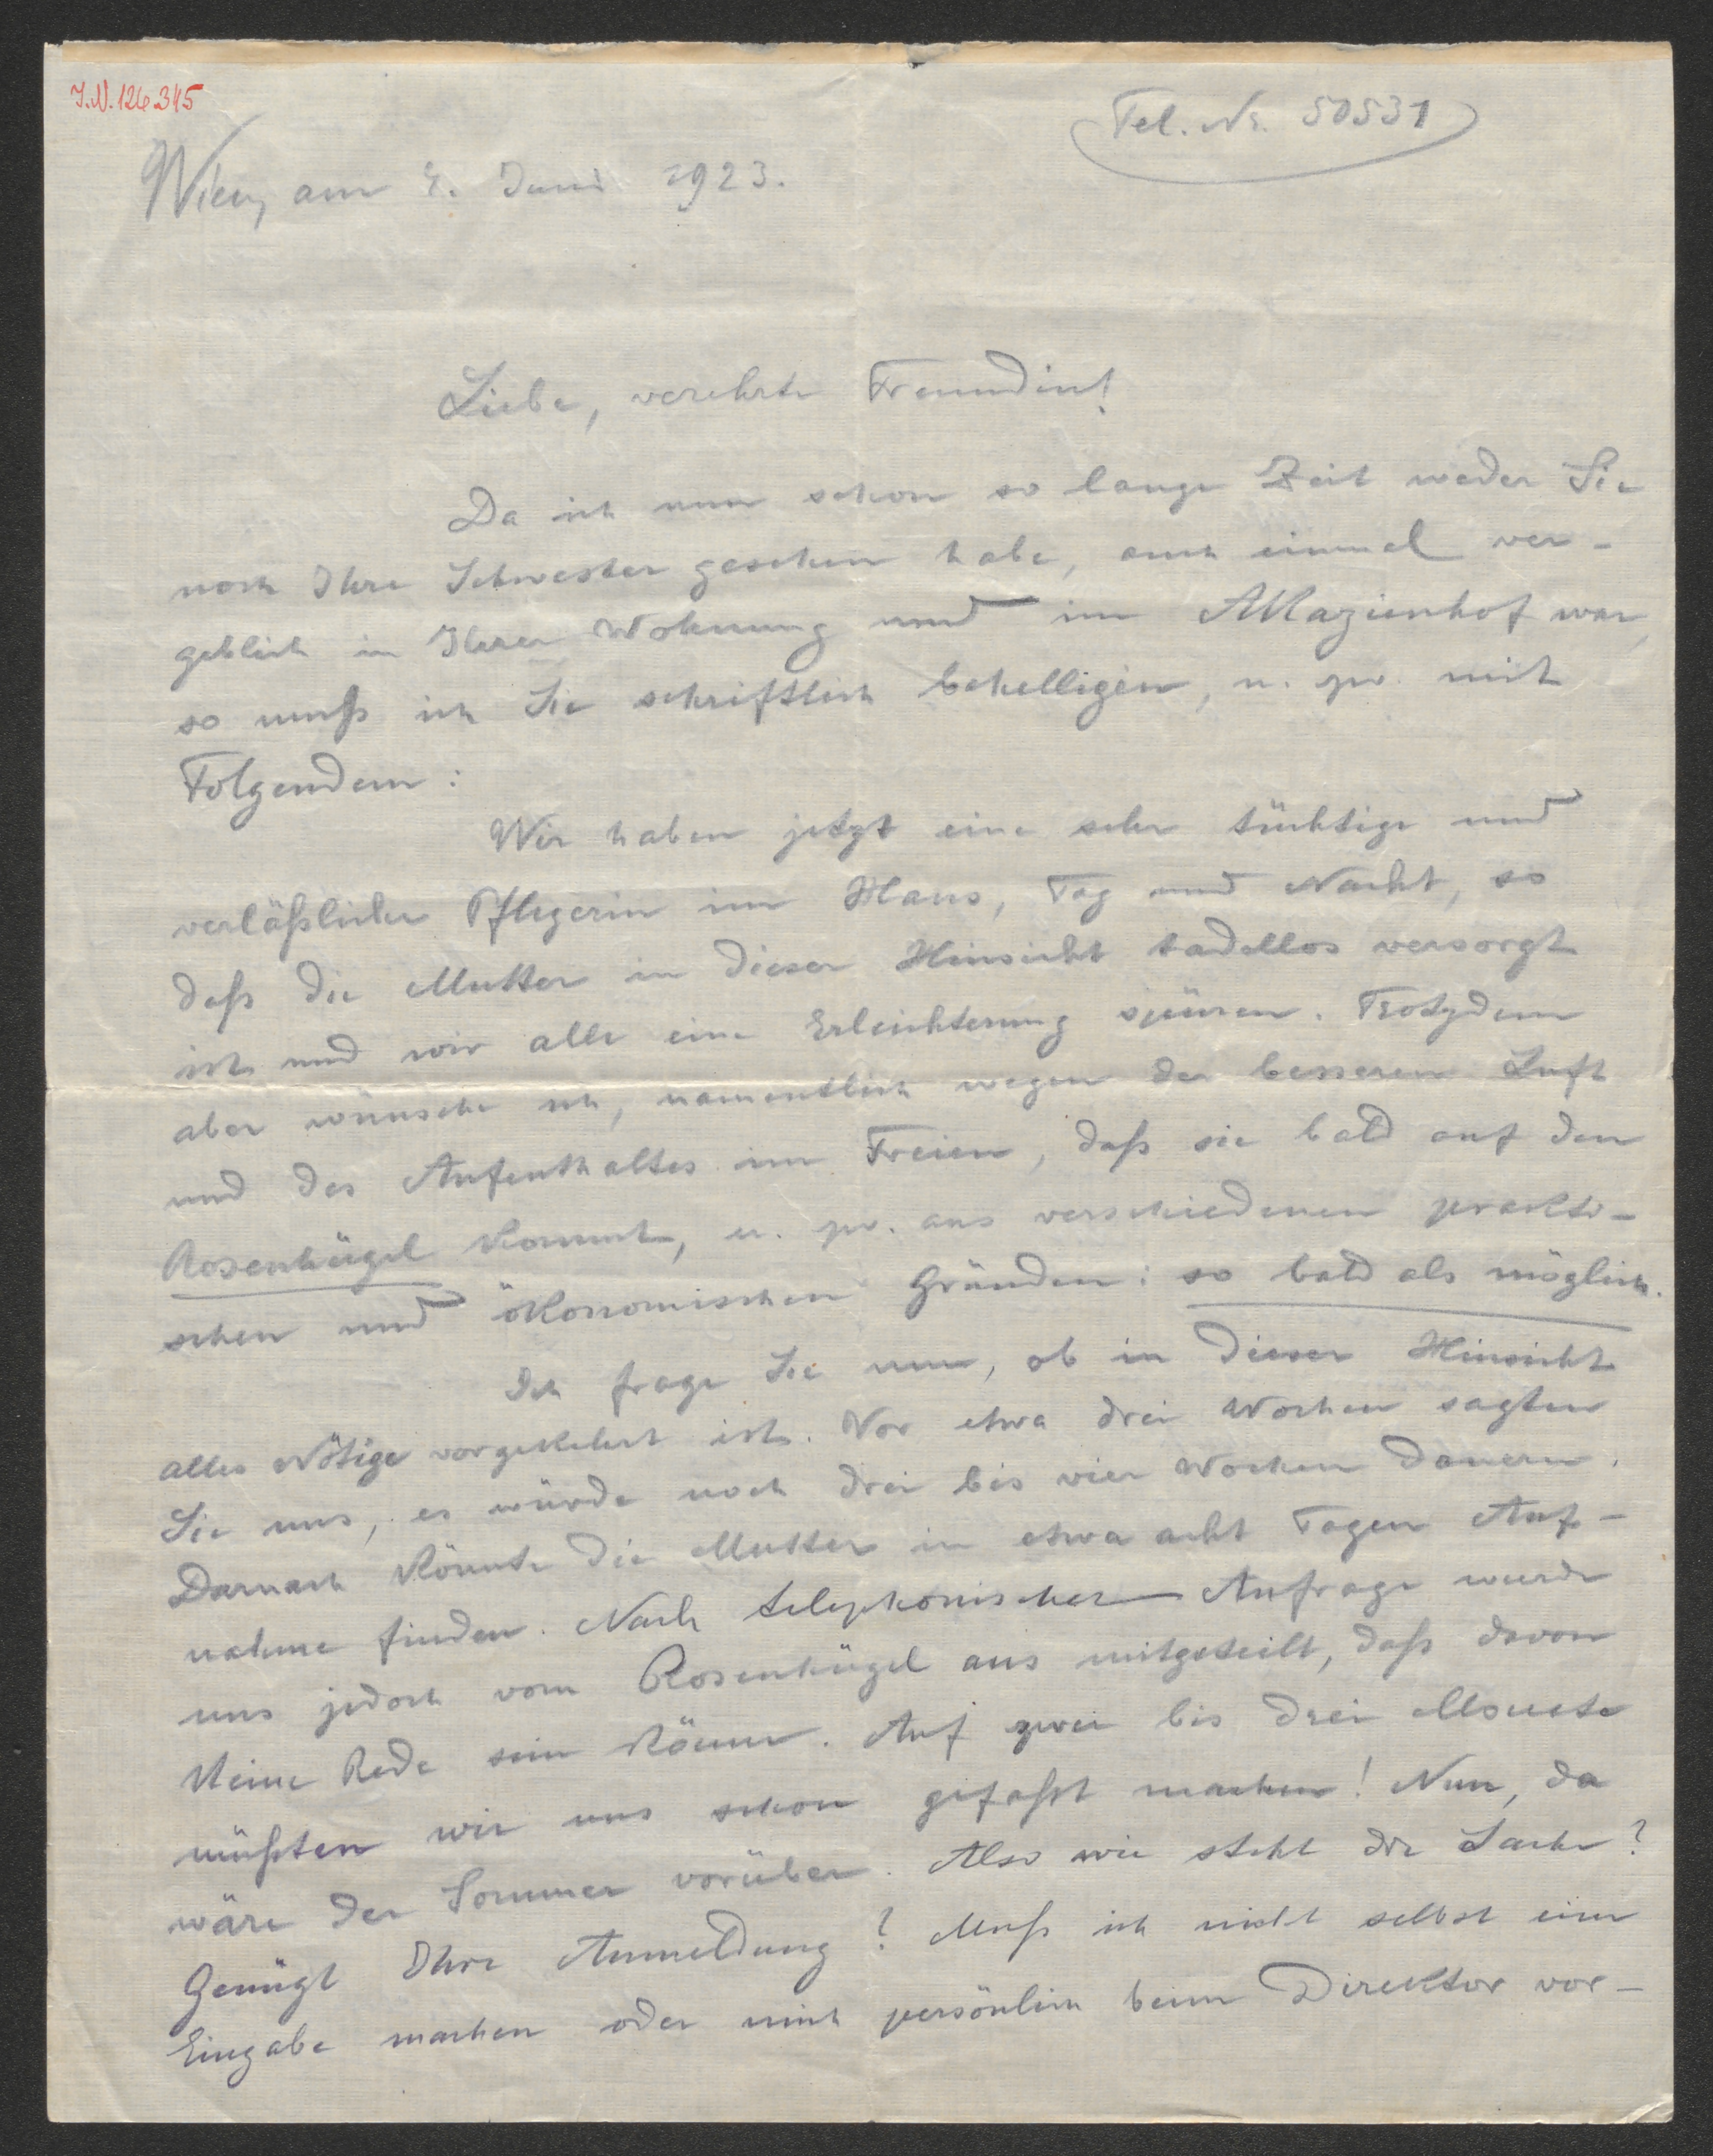 I.N. 126.345
Tel. Nr. 50531
Wien, am 4. Juni 1923.
Liebe, verehrte Freundin!
Da ich nun schon so lange Zeit weder Sie
noch Ihre Schwester gesehen habe, auch einmal ver-
geblich in Ihrer Wohnung und im Akazienhof war,
so muß ich Sie schriftlich behelligen, u. zw. mit
Folgendem:
Wir haben jetzt eine sehr tüchtige und
verläßliche Pflegerin im Haus, Tag und Nacht, so
daß die Mutter in dieser Hinsicht tadellos versorgt
ist und wir alle eine Erleichterung spüren. Trotzdem
aber wünsche ich, namentlich wegen der besseren Luft
und des Aufenthaltes im Freien, daß sie bald auf den
Rosenhügel kommt, u. zw. aus verschiedenen prakti-
schen und ökonomischen Gründen: so bald als möglich.
Ich frage Sie nun, ob in dieser Hinsicht
alles Nötige vorgekehrt ist. Vor etwa drei Wochen sagten
Sie uns, es würde noch drei bis vier Wochen dauern.
Darnach könnte die Mutter in etwa acht Tagen Auf-
nahme finden. Nach telephonischer Anfrage wurde
uns jedoch vom Rosenhügel aus mitgeteilt, daß davon
keine Rede sein könne. Auf zwei bis drei Monate
müßten wir uns schon gefaßt machen! Nun, da
wäre der Sommer vorüber. Also wie steht die Sache?
Genügt Ihre Anmeldung? Muß ich nicht selbst eine
Eingabe machen oder mich persönlich beim Direktor vor-